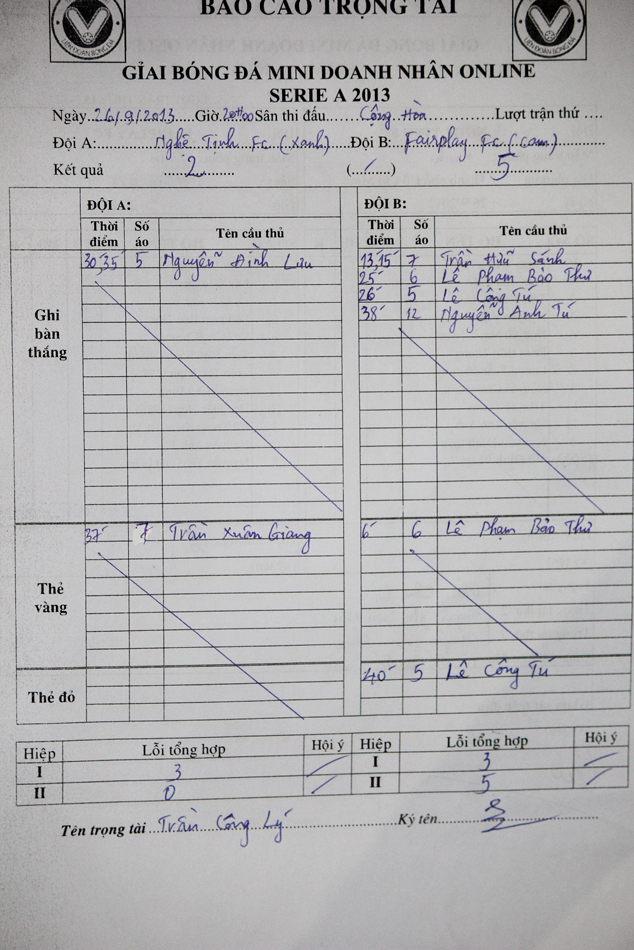 BÁO CÁO TRỌNG TÀI
LIÊN ĐOÀN BÓNG ĐÁ
LIÊN ĐOÀN BÓNG ĐÁ
GIẢI BÓNG ĐÁ MINI DOANH NHÂN ONLINE
SERIE A 2013
Ngày..26/9/2013....Giờ.20H00 Sân thi đấu......Cộng Hòa..............Lượt trận thứ ....
Đội A:..........Nghệ Tịnh Fc (Xanh)....Đội B: Fairplay Fc (cam)..........
Kết quả ......2...... (....../......) ......5......
ĐỘI A: ĐỘI B:
Thời điểm Số áo Tên cầu thủ Thời điểm Số áo Tên cầu thủ
Ghi bàn thắng
30,35' 5 Nguyễn Đình Lưu 13,15' 7 Trần Hữu Sánh
25' 6 Lê Phạm Bảo Thư
26' 5 Lê Công Tú
38' 12 Nguyễn Anh Tú
Thẻ vàng
37' 7 Trần Xuân Giang 6' 6 Lê Phạm Bảo Thư
Thẻ đỏ
40' 5 Lê Công Tú
Hiệp Lỗi tổng hợp Hội ý Hiệp Lỗi tổng hợp Hội ý
I 3 I 3
II 0 II 5
Tên trọng tài ...Trần Công Lý...........................Ký tên..............................